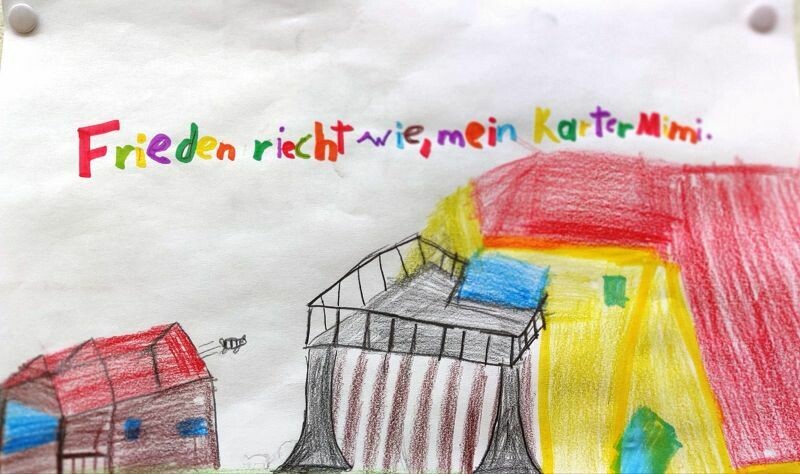 Frieden riecht wie, mein Karter Mimi.